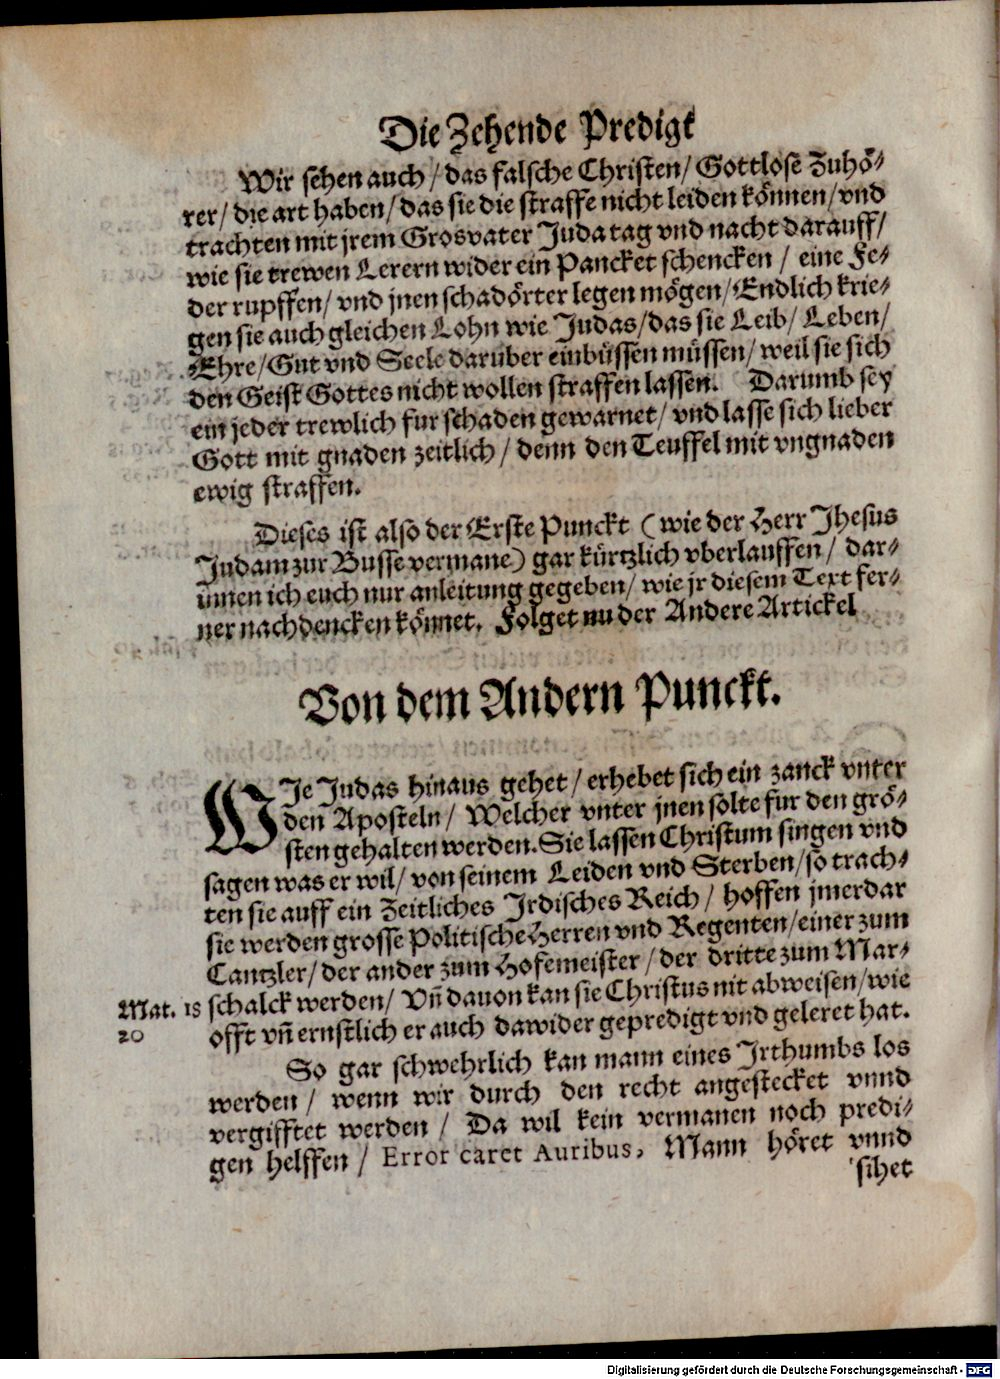 Die Zehende Predigt
Wir sehen auch / das falsche Christen / Gottlose Zuhö-
rer / die art haben / das sie die straffe nicht leiden können / vnd
trachten mit jrem Grosvater Juda tag vnd nacht darauff /
wie sie trewen Lerern wider ein Pancket schencken / eine Fe-
der rupffen / vnd jnen schadörter legen mögen / Endlich krie-
gen sie auch gleichen Lohn wie Judas / das sie Leib / Leben /
Ehre / Gut vnd Seele daruber einbüssen müssen / weil sie sich
den Geist Gottes nicht wollen straffen lassen. Darumb sey
ein jeder trewlich fur schaden gewarnet / vnd lasse sich lieber
Gott mit gnaden zeitlich / denn den Teuffel mit vngnaden
ewig straffen.
Dieses ist also der Erste Punckt (wie der Herr Jhesus
Judam zur Busse vermane) gar kürtzlich vberlauffen / dar-
innen ich euch nur anleitung gegeben / wie jr diesem Text fer-
ner nachdencken könnet. Folget nu der Andere Artickel
Von dem Andern Punckt.
WIe Judas hinaus gehet / erhebet sich ein zanck vnter
den Aposteln / Welcher vnter jnen solte fur den grö-
sten gehalten werden. Sie lassen Christum singen vnd
sagen was er wil / von seinem Leiden vnd Sterben / so trach-
ten sie auff ein Zeitliches Irdisches Reich / hoffen jmerdar
sie werden grosse Politische Herren vnd Regenten / einer zum
Cantzler / der ander zum Hofemeister / der dritte zum Mar-
Mat. 18 schalck werden / Vñ dauon kan sie Christus nit abweisen / wie
20 offt vñ ernstlich er auch dawider geprediget vnd geleret hat.
So gar schwehrlich kan mann eines Irthumbs los
werden / wenn wir durch den recht angestecket vnnd
vergifftet werden / Da wil kein vermanen noch predi-
gen helffen / Error caret Auribus, Mann höret vnnd
sihet
Digitalisierung gefördert durch die Deutsche Forschungsgemeinschaft - DFG